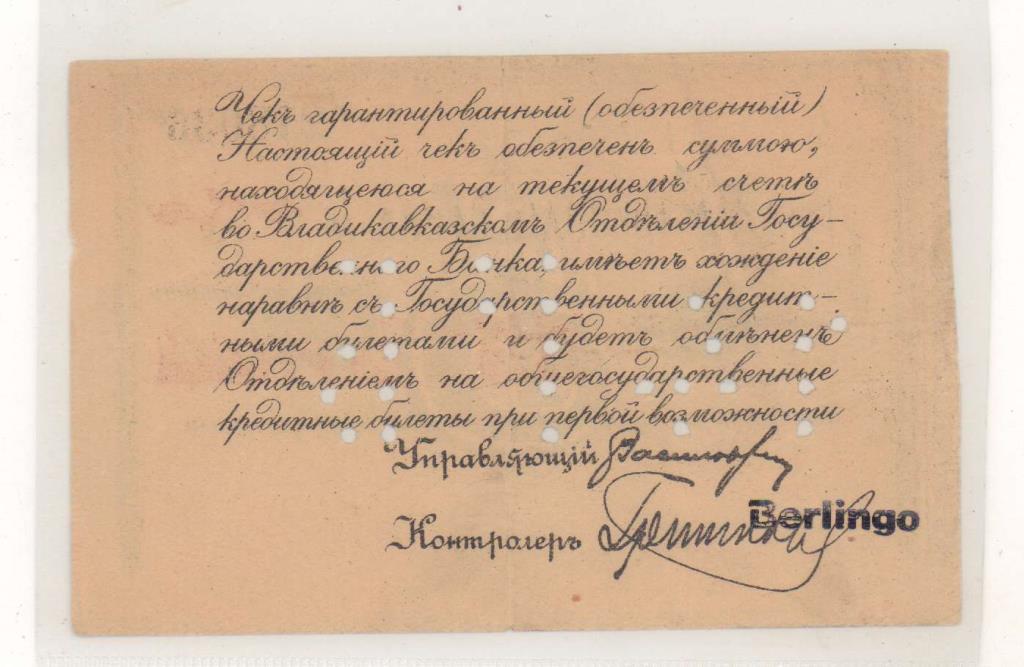 Чекъ гарантированный (обезпеченный)
Настоящій чекъ обезпеченъ суммою,
находящеюся на текущемъ счетѣ
во Владикавказскомъ Отдѣленіи Госу-
дарственнаго Банка, имѣетъ хожденіе
наравнѣ съ Государственными кредит-
ными билетами и будетъ обмѣненъ
Отдѣленіемъ на общегосударственные
кредитные билеты при первой возможности
Управляющій
Контролеръ
Berlingo